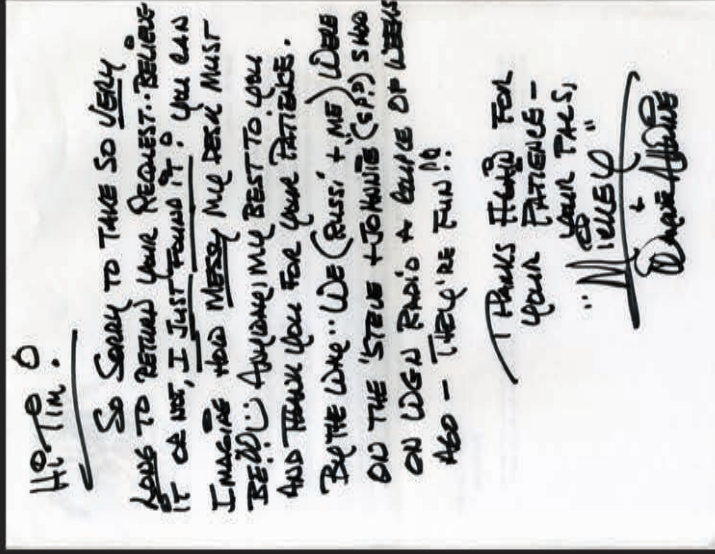 Hi Tim!
So Sorry to take so very
long to return your request.. Believe
it or not, I just found it! You can
imagine how messy my desk must
be!! Anyway, my best to you
and thank you for your patience.
By the way.. we (Russi + me) were
on the "Steve + Johnnie (sp?) show
on WGN Radio a couple of weeks
ago - they're fun!!
Thanks again for
your patience -
your pals,
"Mickey"
+
Wayne Allwine